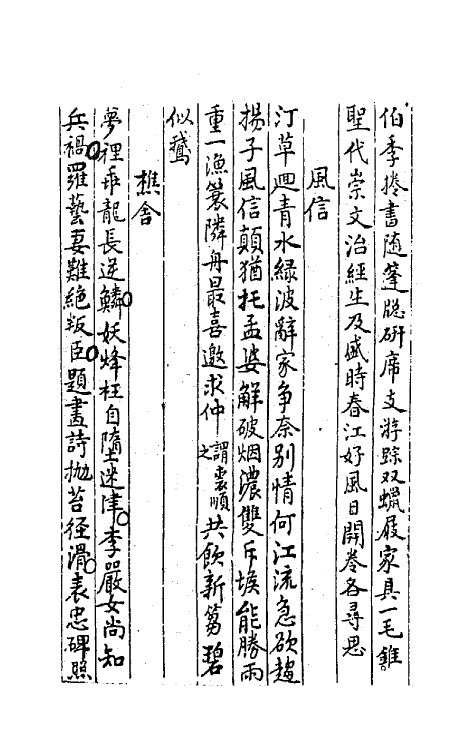 伯季捲書随篷牕研席支游踪双蠟屐家具一毛錐
聖代崇文治經生及盛時春江好風日開卷各尋思
風信
汀草迴青水緑波辭家争奈别情何江流急欲趨
揚子風信顛猶托孟婆解破烟濃雙斥堠能勝雨
重一漁蓑隣舟最喜邀求仲謂裘順之共飲新蒭碧
似鵞
樵舍
夢裡乖龍長逆鱗妖烽枉自墮迷津李嚴女尚知
兵禍羅藝妻難絶叛臣題畫詩抛苔径滑表忠碑照